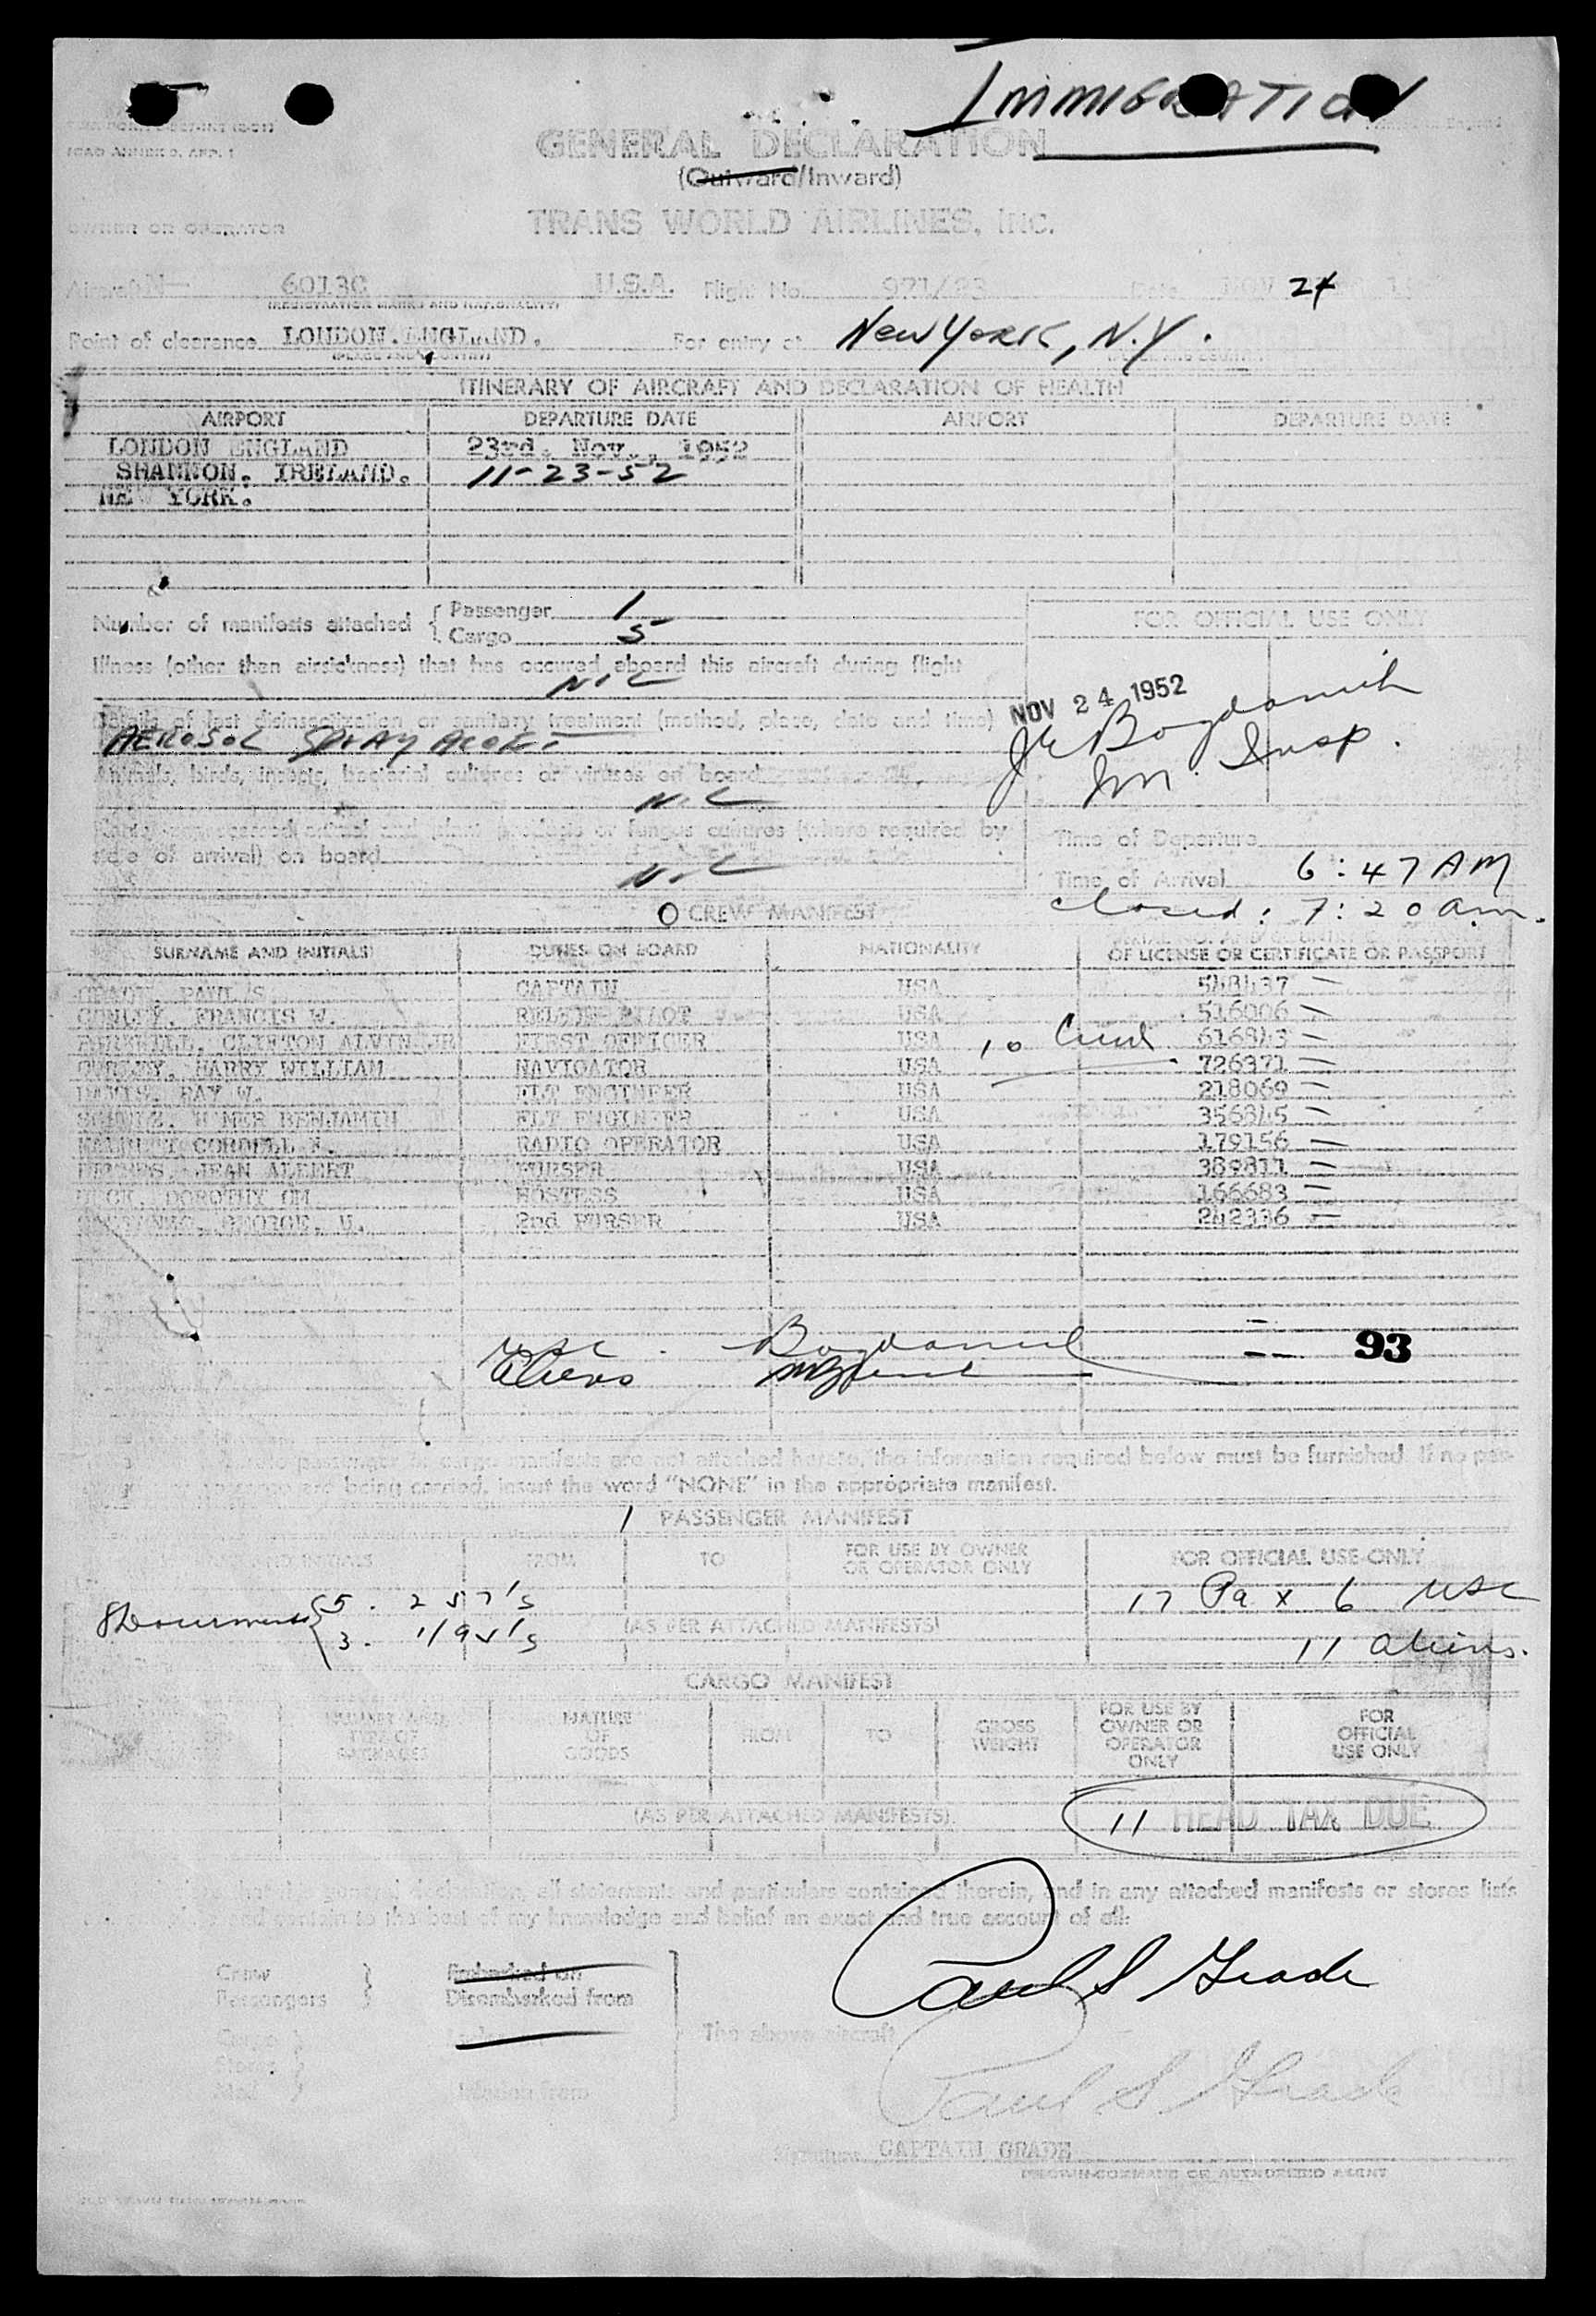 IMMIGRATION
GENERAL DECLARATION
(Outward/Inward)
OWNER OR OPERATOR TRANS WORLD AIRLINES, INC.
Aircraft N— 6013C U.S.A. Flight No. 971/23 Date NOV 24
(REGISTRATION MARKS AND NATIONALITY)
Point of clearance LONDON. ENGLAND. For entry at New York, N.Y.
(PLACE AND COUNTRY)
ITINERARY OF AIRCRAFT AND DECLARATION OF HEALTH
AIRPORT DEPARTURE DATE AIRPORT DEPARTURE DATE
LONDON ENGLAND 23rd. Nov., 1952
SHANNON. IRELAND. 11-23-52
NEW YORK.
Number of manifests attached { Passenger 1
Cargo 5
FOR OFFICIAL USE ONLY
Illness (other than airsickness) that has occured aboard this aircraft during flight
NIL
Details of last disinsectization or sanitary treatment (method, place, date and time)
AEROSOL SPRAY
NOV 24 1952
J E Bogdanich
Im. Insp.
Animals, birds, insects, bacterial cultures or viruses on board
NIL
animal and plant products or fungus cultures (where required by
state of arrival) on board
NIL
Time of Departure
Time of Arrival 6:47 AM
closed: 7:20 am.
O CREW MANIFEST
SURNAME AND INITIALS DUTIES ON BOARD NATIONALITY OF LICENSE OR CERTIFICATE OR PASSPORT
GRADE, PAUL S. CAPTAIN USA 548437 —
CONLEY, FRANCIS W. RELIEF PILOT USA 516006 —
CLIFTON ALVIN JR FIRST OFFICER USA 616843 —
10 Crew
HARRY WILLIAM NAVIGATOR USA 726371 —
DAVIS, RAY W. FLT ENGINEER USA 218069 —
ELMER BENJAMIN FLT ENGINEER USA 356845 —
CORDELL F. RADIO OPERATOR USA 179156 —
JEAN ALBERT PURSER USA 389811 —
DOROTHY OM HOSTESS USA 166683 —
GEORGE, U. 2nd PURSER USA 242336 —
usc. Bogdanich
Aliens
93
passenger cargo manifests are not attached hereto, the information required below must be furnished. If no pas-
are being carried, insert the word "NONE" in the appropriate manifest.
1 PASSENGER MANIFEST
AND INITIALS FROM TO FOR USE BY OWNER OR OPERATOR ONLY FOR OFFICIAL USE ONLY
8 Documents { 5. 257's
3. I/95's
(AS PER ATTACHED MANIFESTS)
17 Pax 6 USC
11 aliens.
CARGO MANIFEST
NUMBER AND TYPE OF PACKAGES NATURE OF GOODS FROM TO GROSS WEIGHT FOR USE BY OWNER OR OPERATOR ONLY FOR OFFICIAL USE ONLY
(AS PER ATTACHED MANIFESTS).
11 HEAD TAX DUE
general declaration, all statements and particulars contained therein, and in any attached manifests or stores lists
contain to the best of my knowledge and belief an exact and true account of all:
Crew } Embarked on
Passengers } Disembarked from
Cargo }
Stores } The above aircraft
Mail }
Paul S Grade
Paul S Grade
Signature CAPTAIN GRADE
PILOT-IN-COMMAND OR AUTHORIZED AGENT